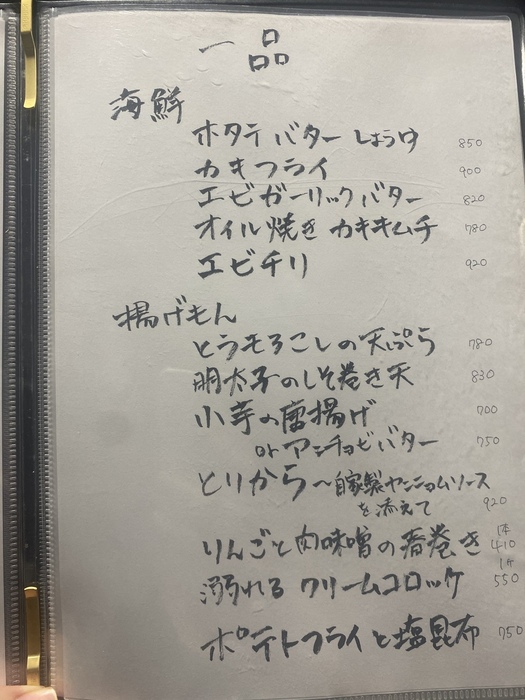 一品
海鮮
ホタテバターしょうゆ 850
カキフライ 900
エビガーリックバター 820
オイル焼きカキキムチ 780
エビチリ 920
揚げもん
とうもろこしの天ぷら 780
明太子のしそ巻き天 830
小芋の唐揚げ 700
or アンチョビバター 750
とりから〜自家製ヤンニョムソース
を添えて 920
りんごと肉味噌の春巻き 1本 410
溺れるクリームコロッケ 1ケ 550
ポテトフライと塩昆布 750